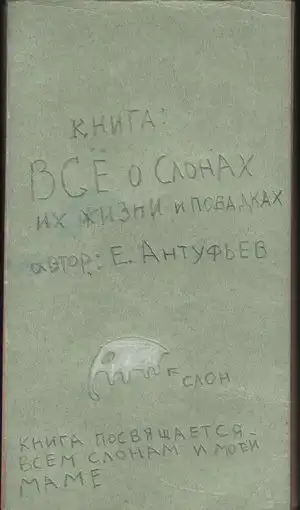 КНИГА:
ВСЁ О СЛОНАХ
ИХ ЖИЗНИ И ПОВАДКАХ
автор: Е. АНТУФЬЕВ
СЛОН
КНИГА ПОСВЯЩАЕТСЯ
ВСЕМ СЛОНАМ И МОЕЙ
МАМЕ